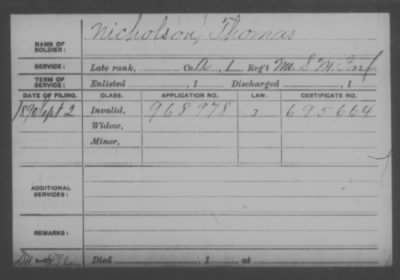 NAME OF SOLDIER: Nicholson, Thomas
SERVICE: Late rank, Co. A, 1 Reg't M. S. M. Inf
TERM OF SERVICE: Enlisted , 1 Discharged , 1
DATE OF FILING. CLASS. APPLICATION NO. LAW. CERTIFICATE NO.
1890 Sept 2 Invalid, 968978 J 695664
Widow,
Minor,
ADDITIONAL SERVICES:
REMARKS:
Died , 1 at